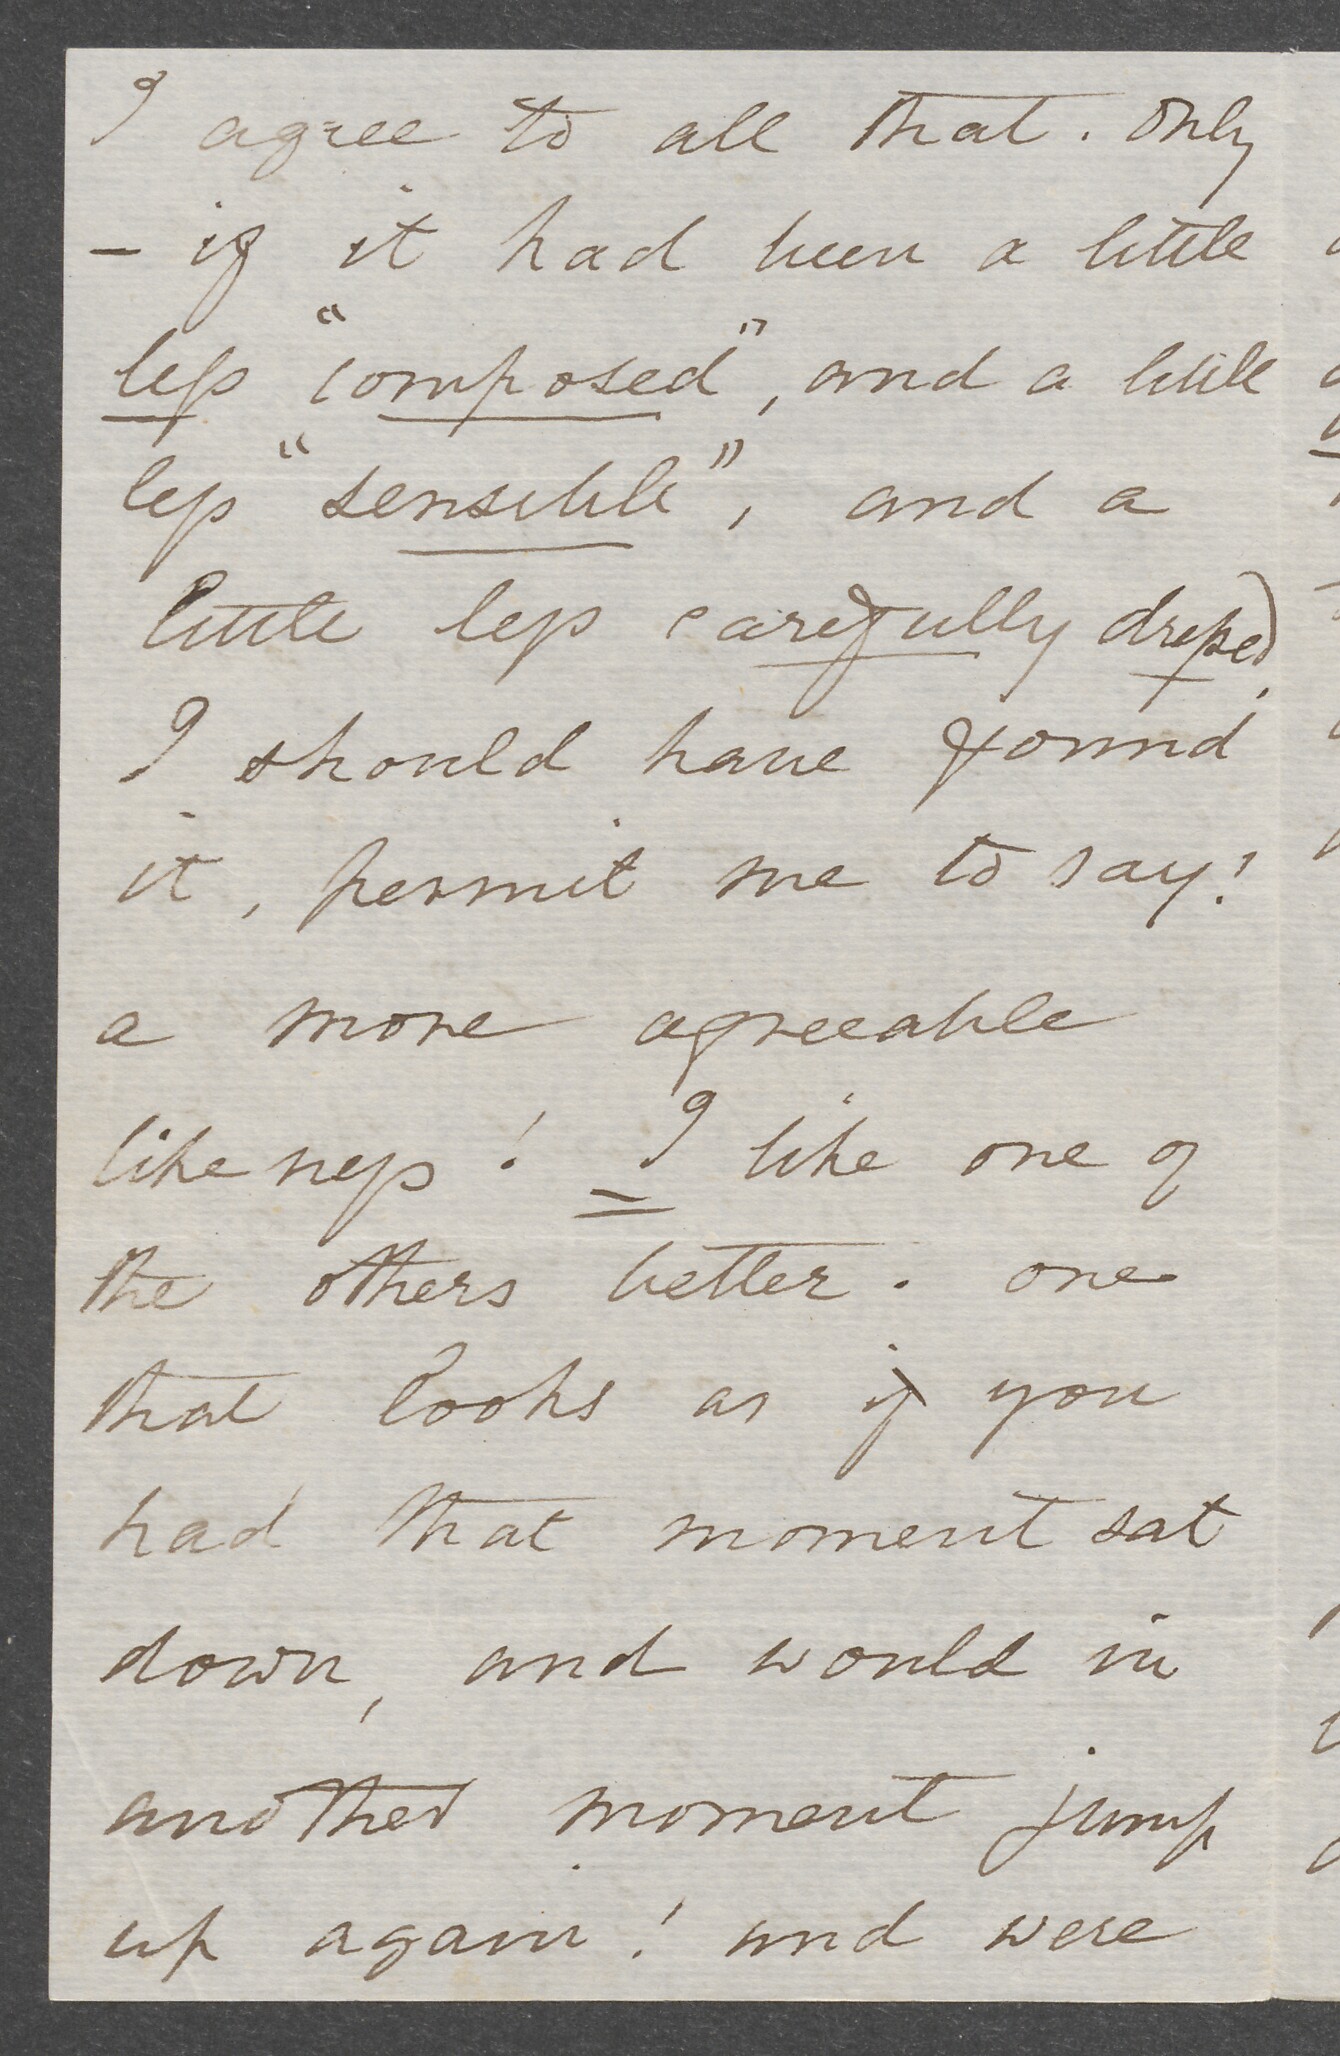 I agree to all that. Only
– if it had been a little
less "composed", and a little
less "sensible", and a
little less carefully dressed,
I should have found
it, permit me to say!
a more agreeable
likeness! – I like one of
the others better. one
that looks as if you
had that moment sat
down, and would in
another moment jump
up again! and were